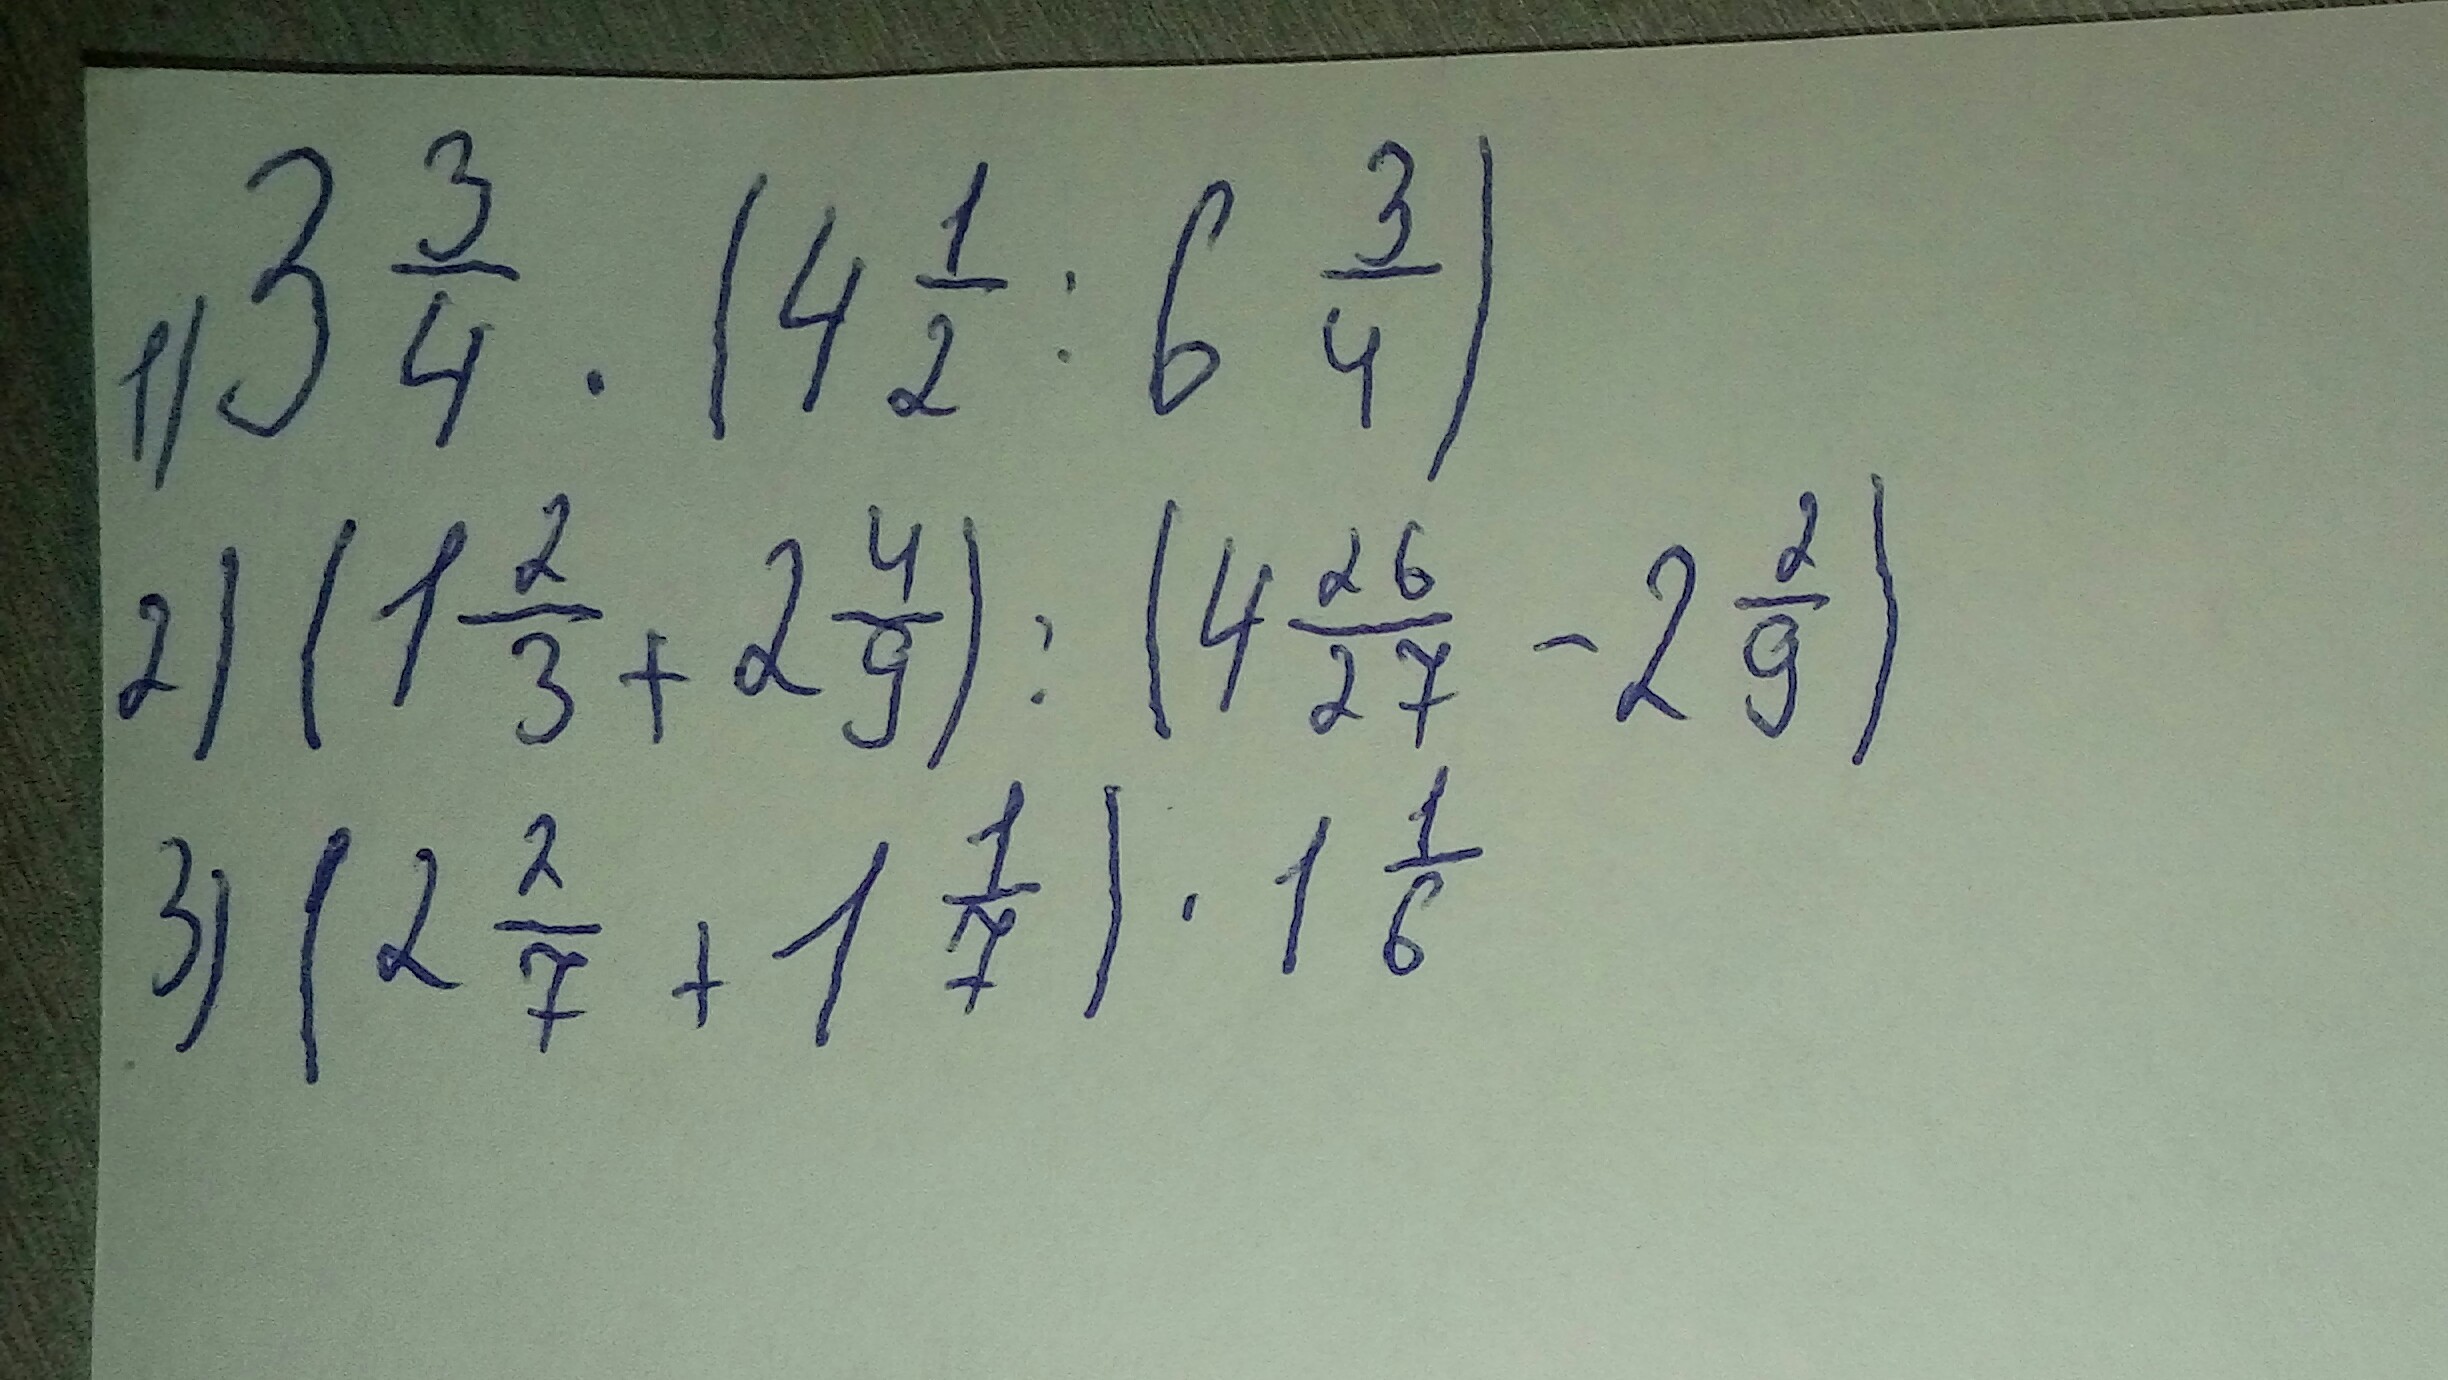 1) 3 3/4 · (4 1/2 : 6 3/4)
2) (1 2/3 + 2 4/9) : (4 26/27 - 2 2/9)
3) (2 2/7 + 1 1/7) · 1 1/6